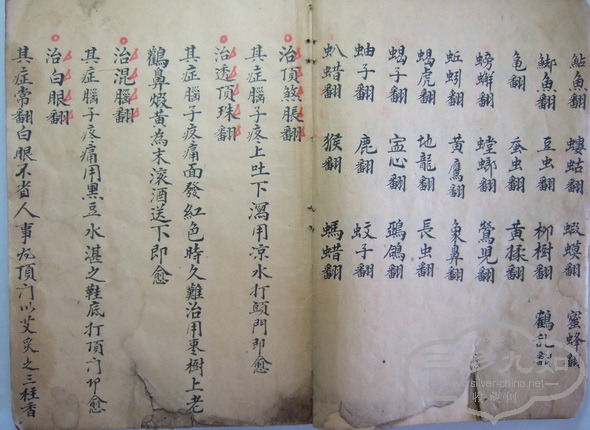 鮎魚翻 螻蛄翻 蝦蟆翻 蜜蜂翻
鯽魚翻 豆虫翻 柳樹翻 鶴翻
龟翻 蚕虫翻 黄揉翻
螃蠏翻 螳螂翻 鶯児翻
蚯蚓翻 黄鷹翻 象鼻翻
蝎虎翻 地龍翻 長虫翻
蝎子翻 心翻 鵓鴿翻
蚰子翻 鹿翻 蚊子翻
蜡翻 猴翻 螞蜡翻
治頂煞脹翻
其症腦子疼上吐下瀉用凉水打顖門即愈
治透頂珠翻
其症腦子疼痛面發紅色時久難治用枣樹上老
鸛鼻煅黄為末滚酒送下即愈
治混腦翻
其症腦子疼痛用黑豆水湛之鞋底打頂门即愈
治白眼翻
其症常翻白眼不省人事於頂门以艾炙之三柱香
www.silver-china.net